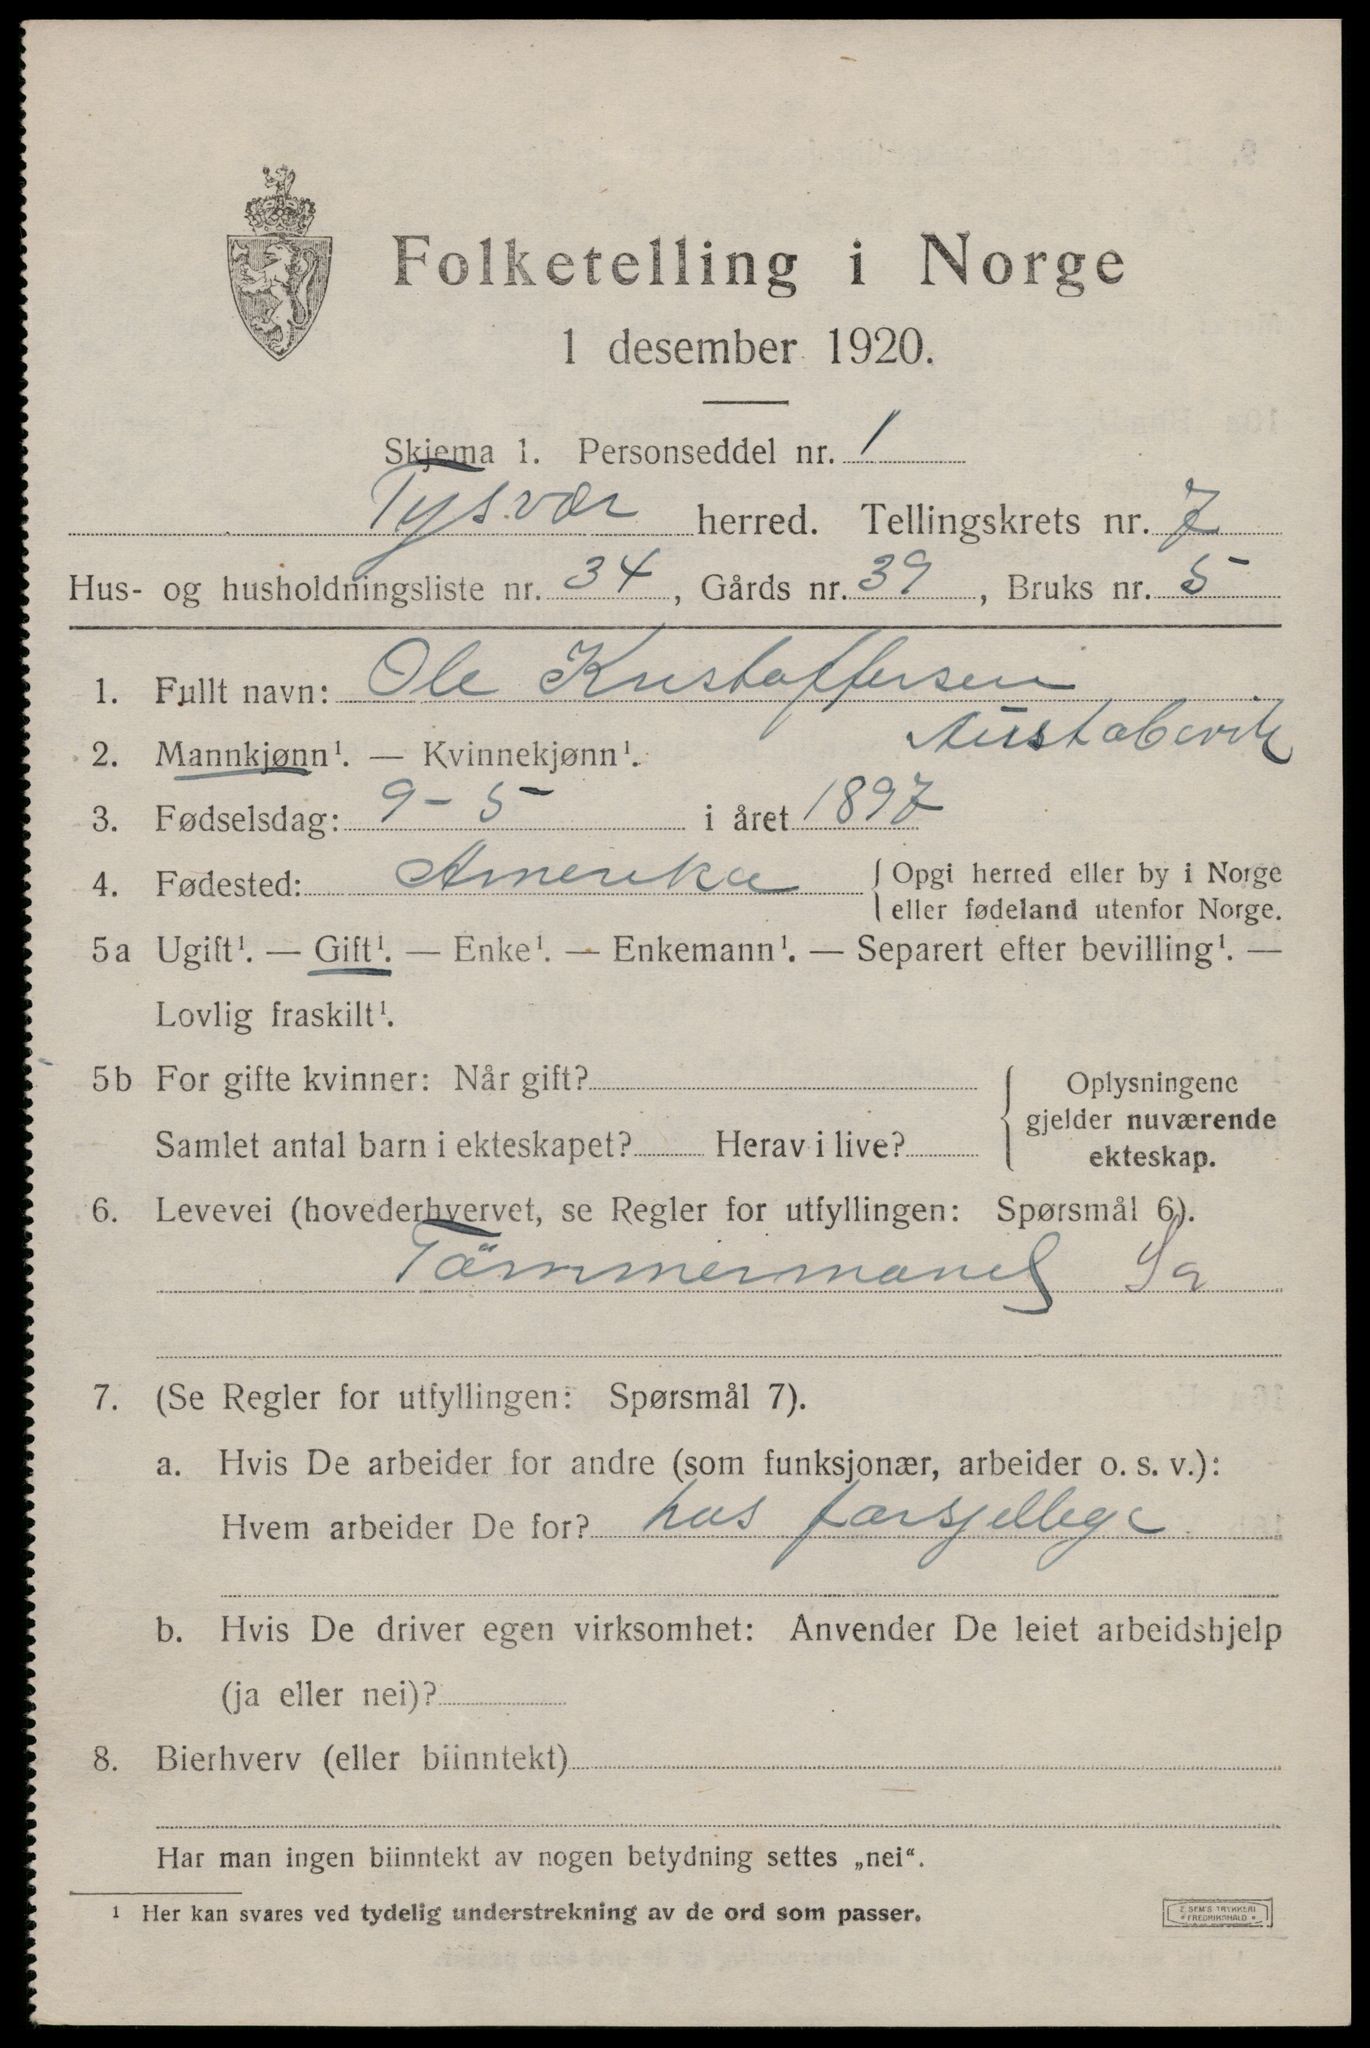 Folketelling i Norge
1 desember 1920.
Skjema 1. Personseddel nr. 1
Tysvær herred. Tellingskrets nr. 7
Hus- og husholdningsliste nr. 34, Gårds nr. 39, Bruks nr. 5
1. Fullt navn: Ole Kristoffersen
Austabøvik
2. Mannkjønn¹. — Kvinnekjønn¹.
3. Fødselsdag: 9-5 i året 1897
4. Fødested: Amerika { Opgi herred eller by i Norge
eller fødeland utenfor Norge.
5a Ugift¹. — Gift¹. — Enke¹. — Enkemann¹. — Separert efter bevilling¹. —
Lovlig fraskilt¹.
5b For gifte kvinner: Når gift? { Oplysningene
gjelder nuværende
Samlet antal barn i ekteskapet? Herav i live?
ekteskap.
6. Levevei (hovederhvervet, se Regler for utfyllingen: Spørsmål 6).
Tömmermand
7. (Se Regler for utfyllingen: Spørsmål 7).
a. Hvis De arbeider for andre (som funksjonær, arbeider o. s. v.):
Hvem arbeider De for? hos forsjellege
b. Hvis De driver egen virksomhet: Anvender De leiet arbeidshjelp
(ja eller nei)?
8. Bierhverv (eller biinntekt)
Har man ingen biinntekt av nogen betydning settes „nei“.
¹ Her kan svares ved tydelig understrekning av de ord som passer.
E. SEM'S TRYKKERI
FREDRIKSHALD